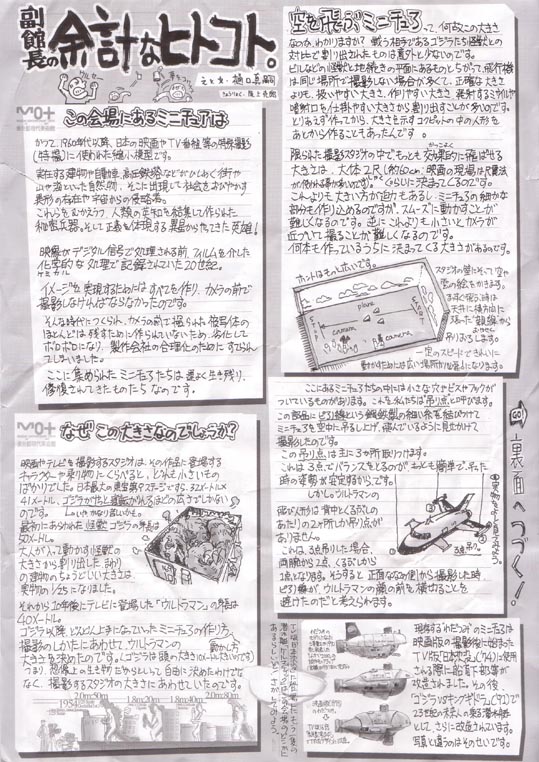 副館長の余計なヒトコト。
え と 文・樋口真嗣
この会場にあるミニチュアは
かつて、1960年代以降、日本の映画やTV番組等の特殊撮影
(特撮)に使われた縮小模型です。
実在する建物や自動車、高圧鉄塔などがひしめく街や
山や海といった自然物、そこに出現して社会をおびやかす
異形の存在や宇宙からの侵略者。
これらをむかえうつ、人類の英知を結集して作られた
和製兵器。そして正義を体現する異星からきた英雄!
映像がデジタル信号で処理される前、フィルムを介した
化学的な処理で記録されていた20世紀。
ケミカル
イメージを実現するためにはすべてを作り、カメラの前で
撮影しなければならなかったのです。
そんな時代につくられ、カメラの前で撮られた被写体の
ほとんどは残すために作られていないため、劣化して
ボロボロになり、製作会社の合理化のためにすてられ
てしまいました。
ここに集められたミニチュアたちは運よく生き残り、
修復されてきたものたちなのです。
なぜこの大きさなのでしょうか?
映画やテレビを撮影するスタジオは、その作品に登場する
キャラクターや乗り物にくらべると、どれも小さいもの
ばかりでした。日本最大の東宝第8ステージですら、32メートル×
41メートル。ゴジラが2匹と 
のです。
最初にあらわれた怪獣ゴジラの身長は
50メートル。
大人が入って動かす怪獣の
大きさから割り出した まわり
の建物のちょうどいい大きさは、
実物の1/25になりました。
それから12年後にテレビに登場した「ウルトラマン」の身長は
40メートル。
ゴジラ以降、じょじょに上手になっていったミニチュアの作り方、
撮影のしかたにあわせて、ウルトラマンの
大きさを決めたのです。
つまり、想像上の生き物だからといって自由に決めたわけで
なく、撮影するスタジオの大きさにあわせていったのです。
空を飛ぶミニチュアって、何故この大きさ
なのか、わかりますか? 戦う相手であるゴジラたち怪獣との
対比で割り出されたものは意外と少ないのです。
ビルなどの怪獣と地続きの平面にあるものとちがって、飛行機
は同じ場所で撮影しない場合が多くて、正確な大きさ
よりも、扱いやすい大きさ、作りやすい大きさ、発射するミサイルや
噴射口を仕掛けやすい大きさから割り出すことが多いのです。
とりあえず作ってから、大きさを示すコクピットの中の人形を
あとから作ることもあったんです。
限られた撮影スタジオの中でもっとも効果的に飛ばせる
大きさは、大体2尺(約60cm:映画の現場は尺貫法
が使われる事が多いのです)くらいに決まってくるのです。
これよりも大きい方が迫力もあるし、ミニチュアの細かな
部分も作り込めるのですが、スムーズに動かすことが
難しくなるのです。逆にこれよりも小さいとカメラが
近づいて撮ることが難しくなるのです。
何本も作っているうちに決まってくる大きさがあるのです。
ホントはもっと広いです。
plane
camera
camera
スタジオの壁にそって空や
雲の絵をかきます。
吊りまわします。
一定のスピードできれいに
動かすためには広い場所が必要になります。
ここにあるミニチュアたちの中には小さな穴やビスやフックが
ついているものがあります。これを私たちは吊り点と呼びます。
この部品にピアノ線という鋼鉄製の細い糸を結びつけて
ミニチュアを空中に吊る上げ、飛んでいるように見せかけて
撮影したのです。
この吊り点は主に3ヶ所取りつけます。
これは、3点でバランスをとるのが、もっとも簡単で、吊った
時の姿勢が安定するからです。
しかし、ウルトラマンの
飛び人形は背中とくるぶしの
あたりの2ヶ所しか吊り点が
ありません。
これは、3点吊りした場合、
両肩から2点、くるぶしから
1点となります。そうすると正面ななめ側から撮影した時
ピアノ線が、ウルトラマンの顔の前を横切ることを
避けたのだと考えられます。
3点吊り。
裏面へつづく!
現存する「わだつみ」のミニチュアは
映画版の撮影後に始まった
TV版「日本沈没」('74)に使用
される際に船首下部等が
改造されました。その後
「ゴジラvsキングギドラ」('91)で
23世紀の未来人の乗る潜水艇
として、さらに改造されています。
写真と違うのはそのせいです。